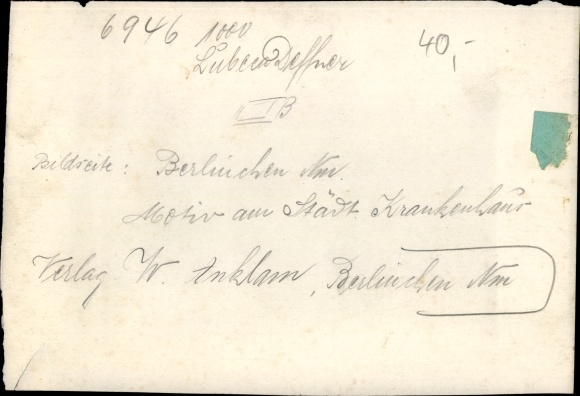 6946 1000 40,-
Lubeca Deffner
II B
Bildseite: Berlinchen Nm.
Motiv am Städt. Krankenhaus
Verlag W. Anklam, Berlinchen Nm